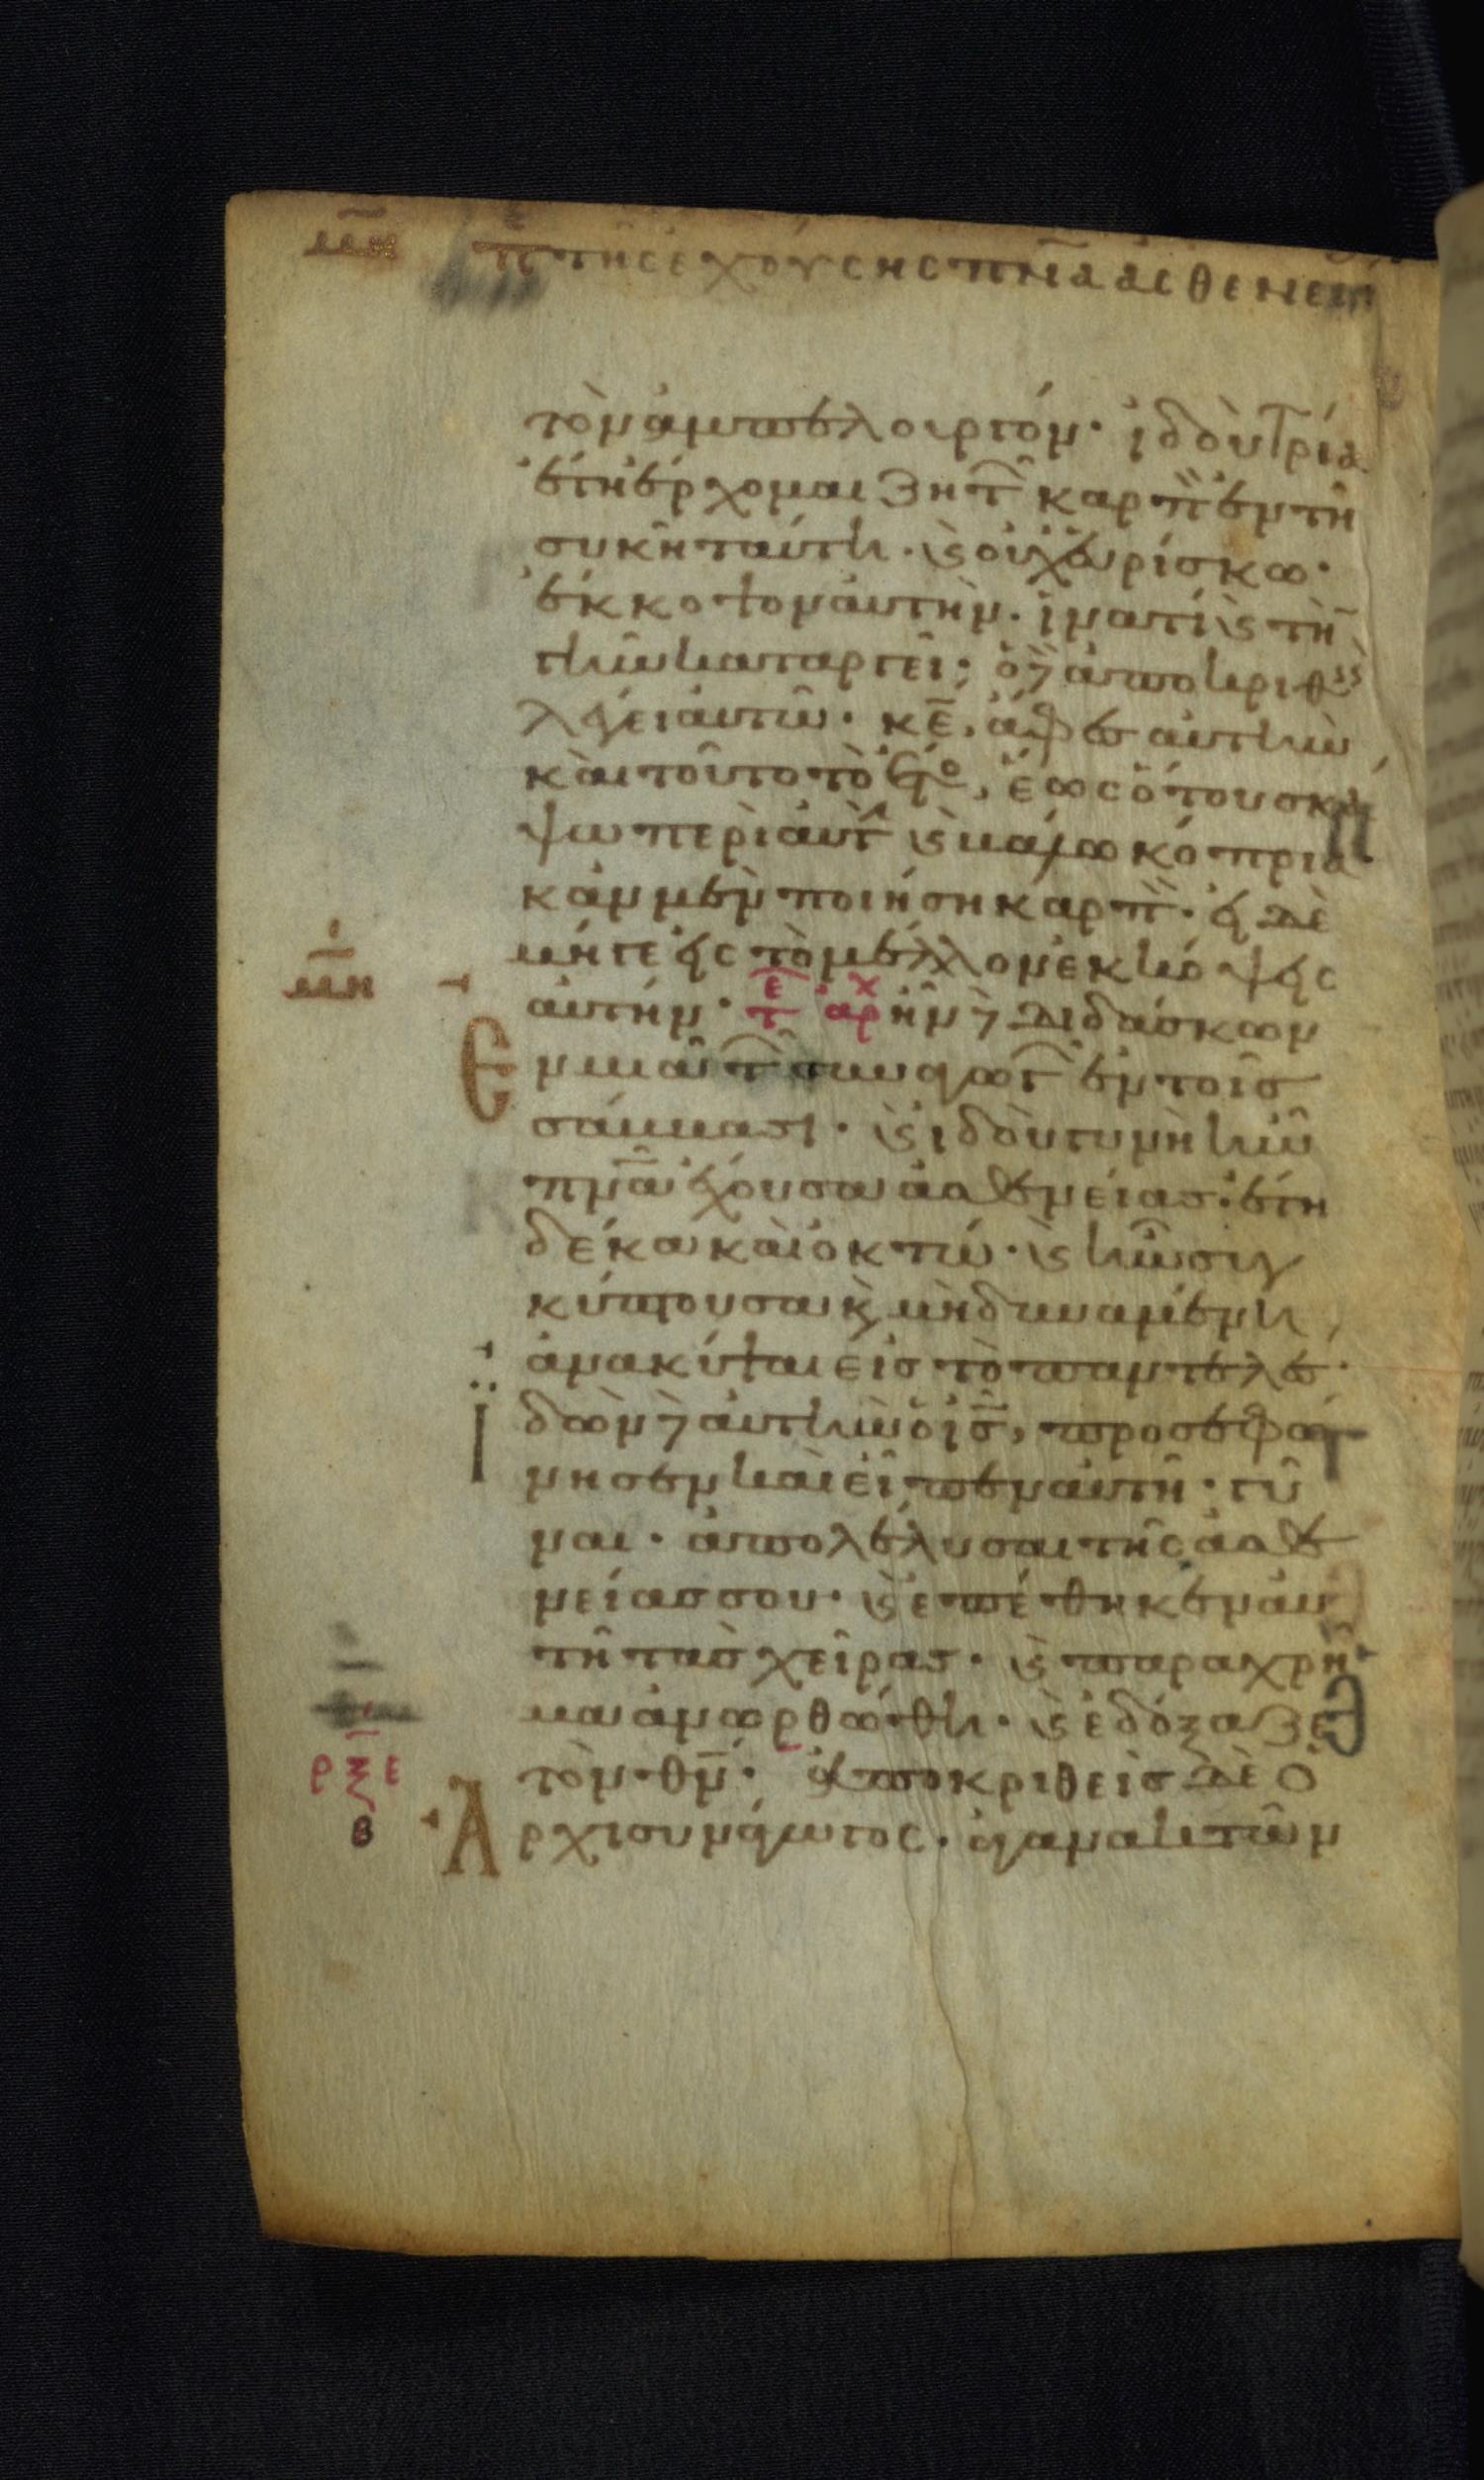 μη π τῆς ἐχούσης πνα ἀσθενεί
τὸν ἀμπελουργόν· ἰδοὺ τρία
ἔτη ἔρχομαι ζητ καρπ ἐν τῆ
συκῆ ταύτη· κ οὐχ εὑρίσκω·
ἔκκοψον αὐτήν· ἱνατί κ τὴ
γῆν καταργεῖ; ὁ δ ἀποκριθεὶς
λέγει αὐτῶ· κε, ἄφες αὐτὴν
καὶ τοῦτο τὸ ἔτο, ἕως ὅτου σκά
ψω περὶ αὐτ κ βάλω κόπρια·
κἂν μὲν ποιήση καρπ· εἰ δὲ
μήγε εἰς τὸ μέλλον ἐκκόψεις
μη
αὐτήν· τε αρχ ἦν δ διδάσκων
Εν μιᾶ τ συναγωγ ἐν τοῖς
σάββασι· κ ἰδοὺ γυνὴ ἦν
πνα ἔχουσα ἀσθενείας· ἔτη
δέκα καὶ ὀκτώ· κ ἦν συγ
κύπτουσα κ μὴ δυναμένη
ἀνακύψαι εἰς τὸ παντελές·
Ϊδὼν δ αὐτὴν ὁ ις, προσεφώ
νησεν καὶ εἶπεν αὐτῆ· γύ
ναι· ἀπολέλυσαι τῆς ἀσθε
νείας σου· κ ἐπέθηκεν αὐ
τῆ τὰς χεῖρας· κ παραχρῆ
μα ἀνωρθώθη· κ ἐδόξαζε
ρξε
τὸν θν· ἀποκριθεὶς δὲ ὁ
β
Αρχισυνάγωγος· ἀγανακτῶν